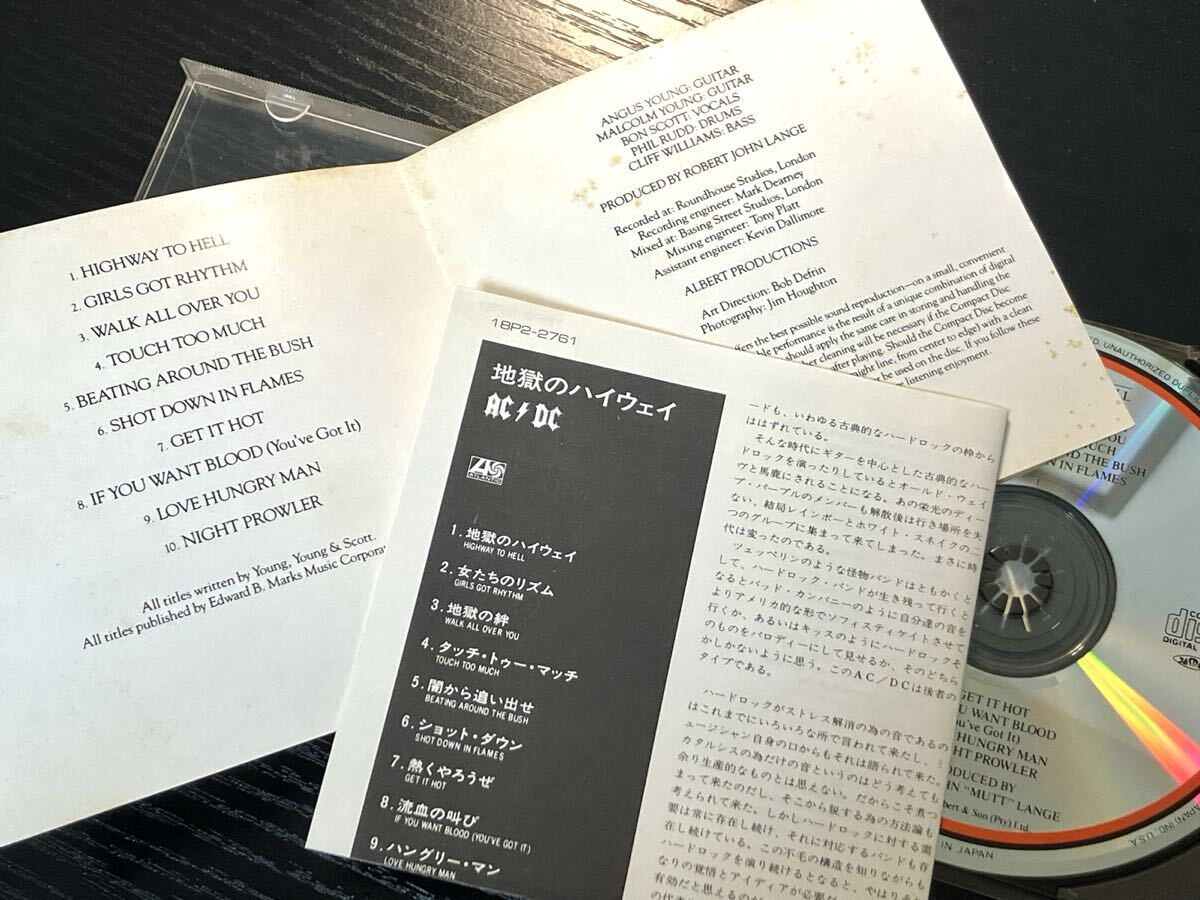 1. HIGHWAY TO HELL
2. GIRLS GOT RHYTHM
3. WALK ALL OVER YOU
4. TOUCH TOO MUCH
5. BEATING AROUND THE BUSH
6. SHOT DOWN IN FLAMES
7. GET IT HOT
8. IF YOU WANT BLOOD (You've Got It)
9. LOVE HUNGRY MAN
10. NIGHT PROWLER
All titles written by Young, Young & Scott.
All titles published by Edward B. Marks Music
ANGUS YOUNG: GUITAR
MALCOLM YOUNG: GUITAR
BON SCOTT: VOCALS
PHIL RUDD: DRUMS
CLIFF WILLIAMS: BASS
PRODUCED BY ROBERT JOHN LANGE
Recorded at: Roundhouse Studios, London
Recording engineer: Mark Dearney
Mixed at: Basing Street Studios, London
Mixing engineer: Tony Platt
Assistant engineer: Kevin Dallimore
ALBERT PRODUCTIONS
Art Direction: Bob Defrin
Photography: Jim Houghton
the best possible sound reproduction—on a small, convenient
performance is the result of a unique combination of digital
should apply the same care in storing and handling the
cleaning will be necessary if the Compact Disc
after playing. Should the Compact Disc become
line, from center to edge) with a clean
be used on the disc. If you follow these
listening enjoyment.
18P2-2761
地獄のハイウェイ
AC/DC
ATLANTIC
1. 地獄のハイウェイ
HIGHWAY TO HELL
2. 女たちのリズム
GIRLS GOT RHYTHM
3. 地獄の絆
WALK ALL OVER YOU
4. タッチ・トゥー・マッチ
TOUCH TOO MUCH
5. 闇から追い出せ
BEATING AROUND THE BUSH
6. ショット・ダウン
SHOT DOWN IN FLAMES
7. 熱くやろうぜ
GET IT HOT
8. 流血の叫び
IF YOU WANT BLOOD (YOU'VE GOT IT)
9. ハングリー・マン
LOVE HUNGRY MAN
ードも、いわゆる古典的なハードロックの枠から
ははずれている。
そんな時代にギターを中心とした古典的なハー
ドロックを演ったりしているとオールド・ウェイ
ヴと馬鹿にされることになる。あの栄光のディー
プ・パープルのメンバーも解散後は行き場所を失
ない、結局レインボーとホワイト・スネイクの二
つのグループに集まって来てしまった。まさに時
代は変ったのである。
ツェッペリンのような怪物バンドはともかくと
して、ハードロック・バンドが生き残って行くと
なるとバッド・カンパニーのように自分達の音を
よりアメリカ的な形でソフィスティケイトさせて
行くか、あるいはキッスのようにハードロックそ
のものをパロディーにして見せるか、そのどちら
かしかないように思う。このAC/DCは後者の
タイプである。
ハードロックがストレス解消の為の音であるの
はこれまでにいろいろな所で言われて来たし、ミ
ュージシャン自身の口からもそれは語られて来た。
カタルシスの為だけの音というのはどう考えても
余り生産的なものとは思えない。だからこそ煮つ
まって来たのだし、そこから脱する為の方法論も
考えられて来た。しかしハードロックに対する需
要は常に存在し続け、それに対応するバンドも存
在し続けている。この不毛の構造を知りながらも
ハードロックを演り続けるとなると、やはり
なりの覚悟とアイディアが必要
有効だと思えるのが
の代表
UNAUTHORIZED
AND THE BUSH
IN FLAMES
GET IT HOT
WANT BLOOD
(You've Got It)
HUNGRY MAN
PROWLER
BY
"MUTT" LANGE
& Son (Pty) Ltd.
IN JAPAN
DIGITAL
JAPAN INC. U.S.A.